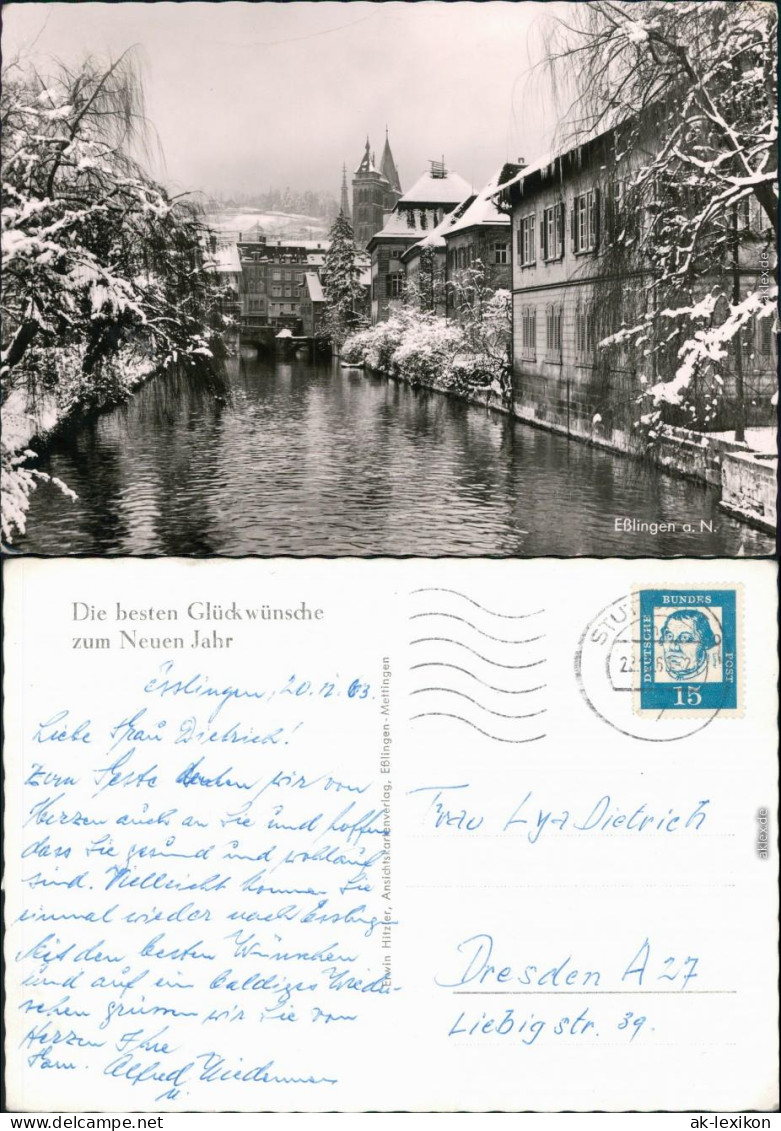 Eßlingen a. N.
Die besten Glückwünsche
zum Neuen Jahr
Esslingen, 20.12.63.
Liebe Frau Dietrich!
Zum Feste denken wir von
Herzen auch an Sie und hoffen
dass Sie gesund und wohlauf
sind. Vielleicht kommen Sie
einmal wieder nach Esslingen
Mit den besten Wünschen
und auf ein baldiges Wieder-
sehen grüssen wir Sie von
Herzen Ihre
Fam. Alfred
Erwin Hitzler, Ansichtskartenverlag, Eßlingen-Mettingen
STUT
DEUTSCHE
BUNDES
POST
15
Frau Lya Dietrich
Dresden A 27
Liebigstr. 39.
aklex.de
aklex.de
www.ansichtskarten-lexikon.de
ak-lexikon